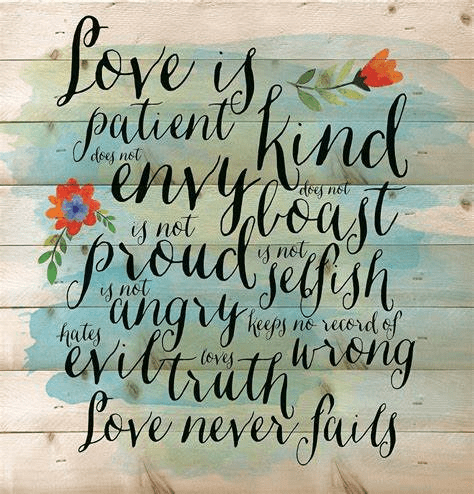 Love is
patient kind
does not envy does not boast
is not proud is not selfish
is not angry keeps no record of wrong
hates evil loves truth
Love never fails